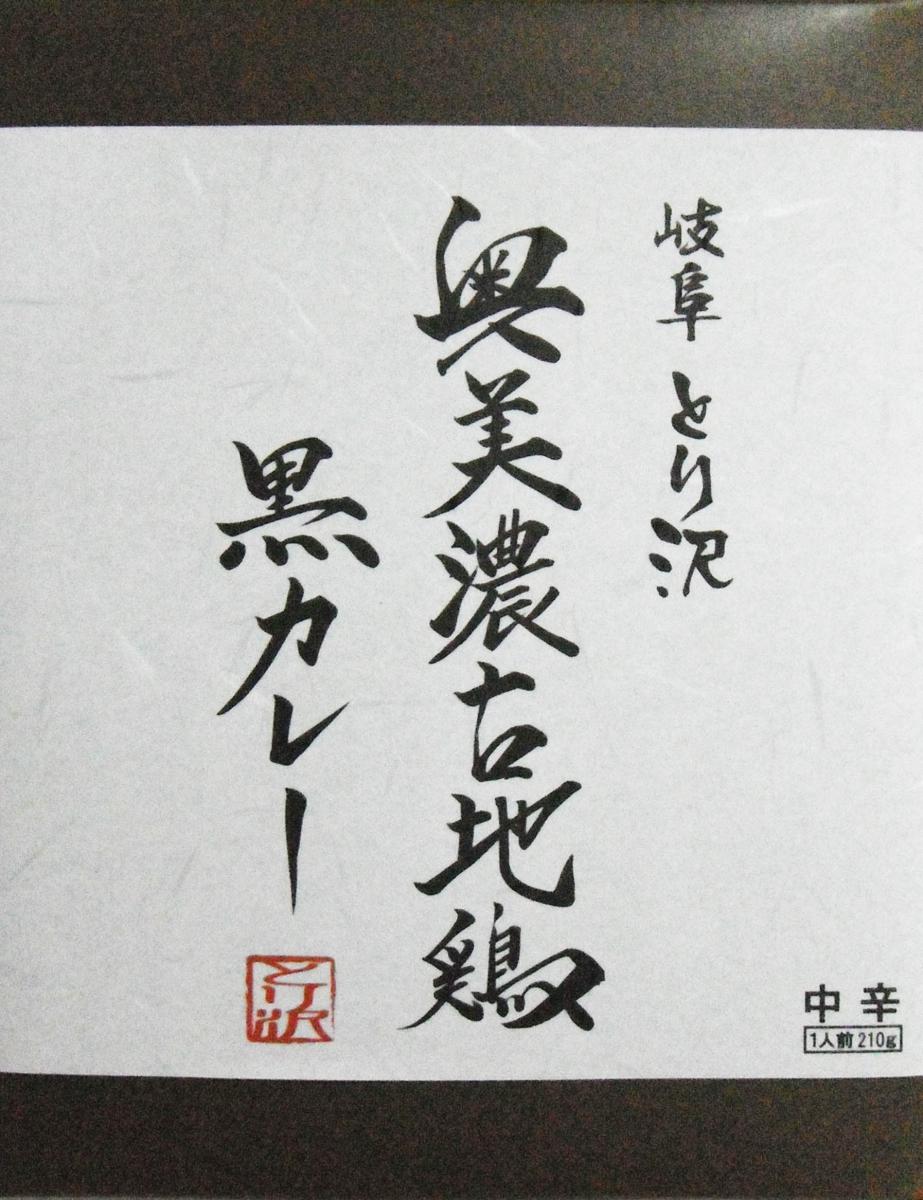 岐阜 とり沢
奥美濃古地鶏
黒カレー
とり沢
中辛
1人前210g